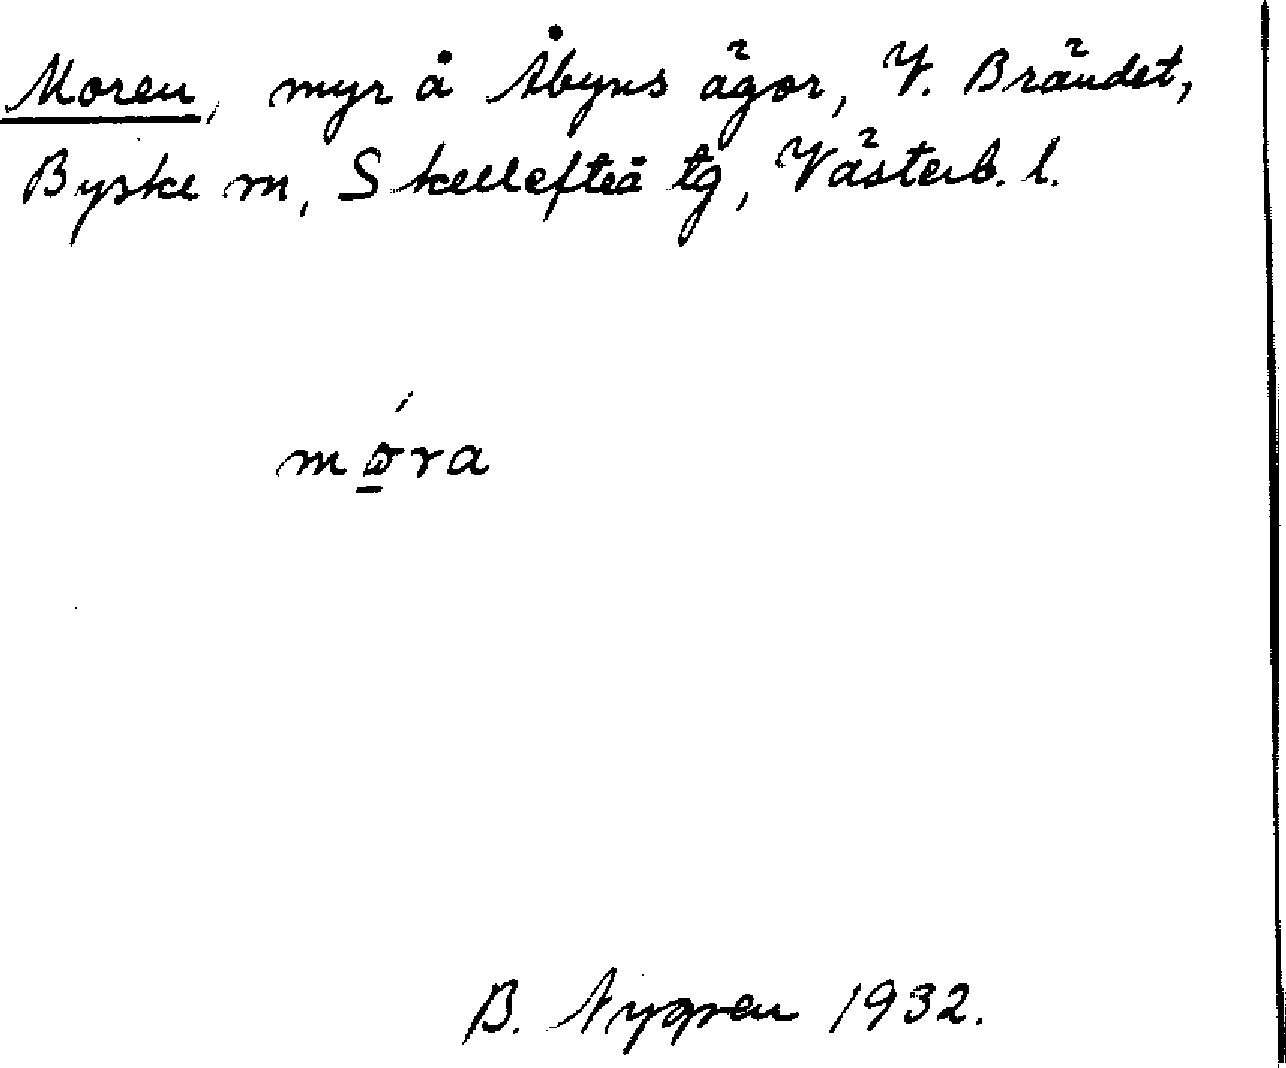 Moren, myr å Åbyns ägor, V. Brändet,
Byske sn, Skellefteå tg, Västerb. l.
B. Nygren 1932.